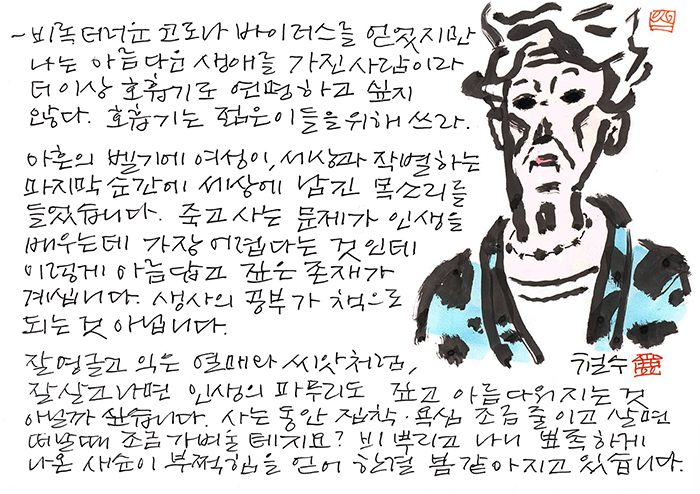 ~비록 더러운 코로나 바이러스를 얻었지만
나는 아름다운 생애를 가진 사람이라
더 이상 호흡기로 연명하고 싶지
않다. 호흡기는 젊은이들을 위해 쓰라.
아흔의 벨기에 여성이, 세상과 작별하는
마지막 순간에 세상에 남긴 목소리를
들었습니다. 죽고 사는 문제가 인생을
배우는데 가장 어렵다는 것인데
이렇게 아름답고 깊은 존재가
계십니다. 생사의 공부가 책으로
되는 것 아닙니다.
잘 영글고 익은 열매와 씨앗처럼,
잘 살고나면 인생의 마무리도 깊고 아름다워지는 것
아닐까 싶습니다. 사는 동안 집착·욕심 조금 줄이고 살면
떠날 때 조금 가벼울 테지요? 비 뿌리고 나니 뾰족하게
나온 새순이 부쩍 힘을 얻어 한결 봄 같아지고 있습니다.
철수